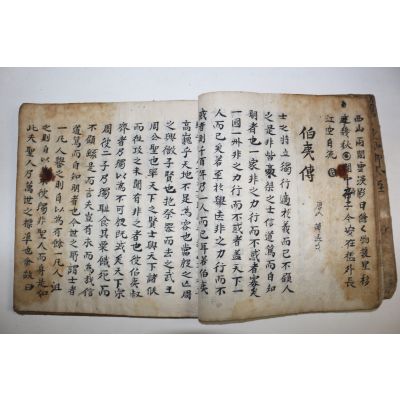 西山雨閒雲潭影日悠〻物換星移
秋 子今安在檻外長
江空自流
伯夷傳
唐人
士之特立獨行適於義而已不顧人
之是非皆豪傑之士信道篤而自知
明者也一家非之力行而不惑者寡矣
一國一州非之力行而不惑者盖天下一
人而已若至於舉世非之力行而不
惑者則千百年乃一人而已耳若伯夷
高巍乎天地不足爲容也當殷之亡周
之興微子賢也抱祭器而去之武王
周公聖也率天下之賢士與天下諸侯
而往攻之未聞有非之者也彼伯夷叔
齊者乃獨以爲不可殷既滅矣天下宗
周彼二子乃獨恥食其粟餓死而
不顧繇是而言夫豈有求而爲哉信
道篤而自知明者也今世之所謂士者
一凡人譽之則自以爲有餘一凡人沮
之則自以爲不足彼獨非聖人而自是如
此夫聖人乃萬世之標準也余故曰